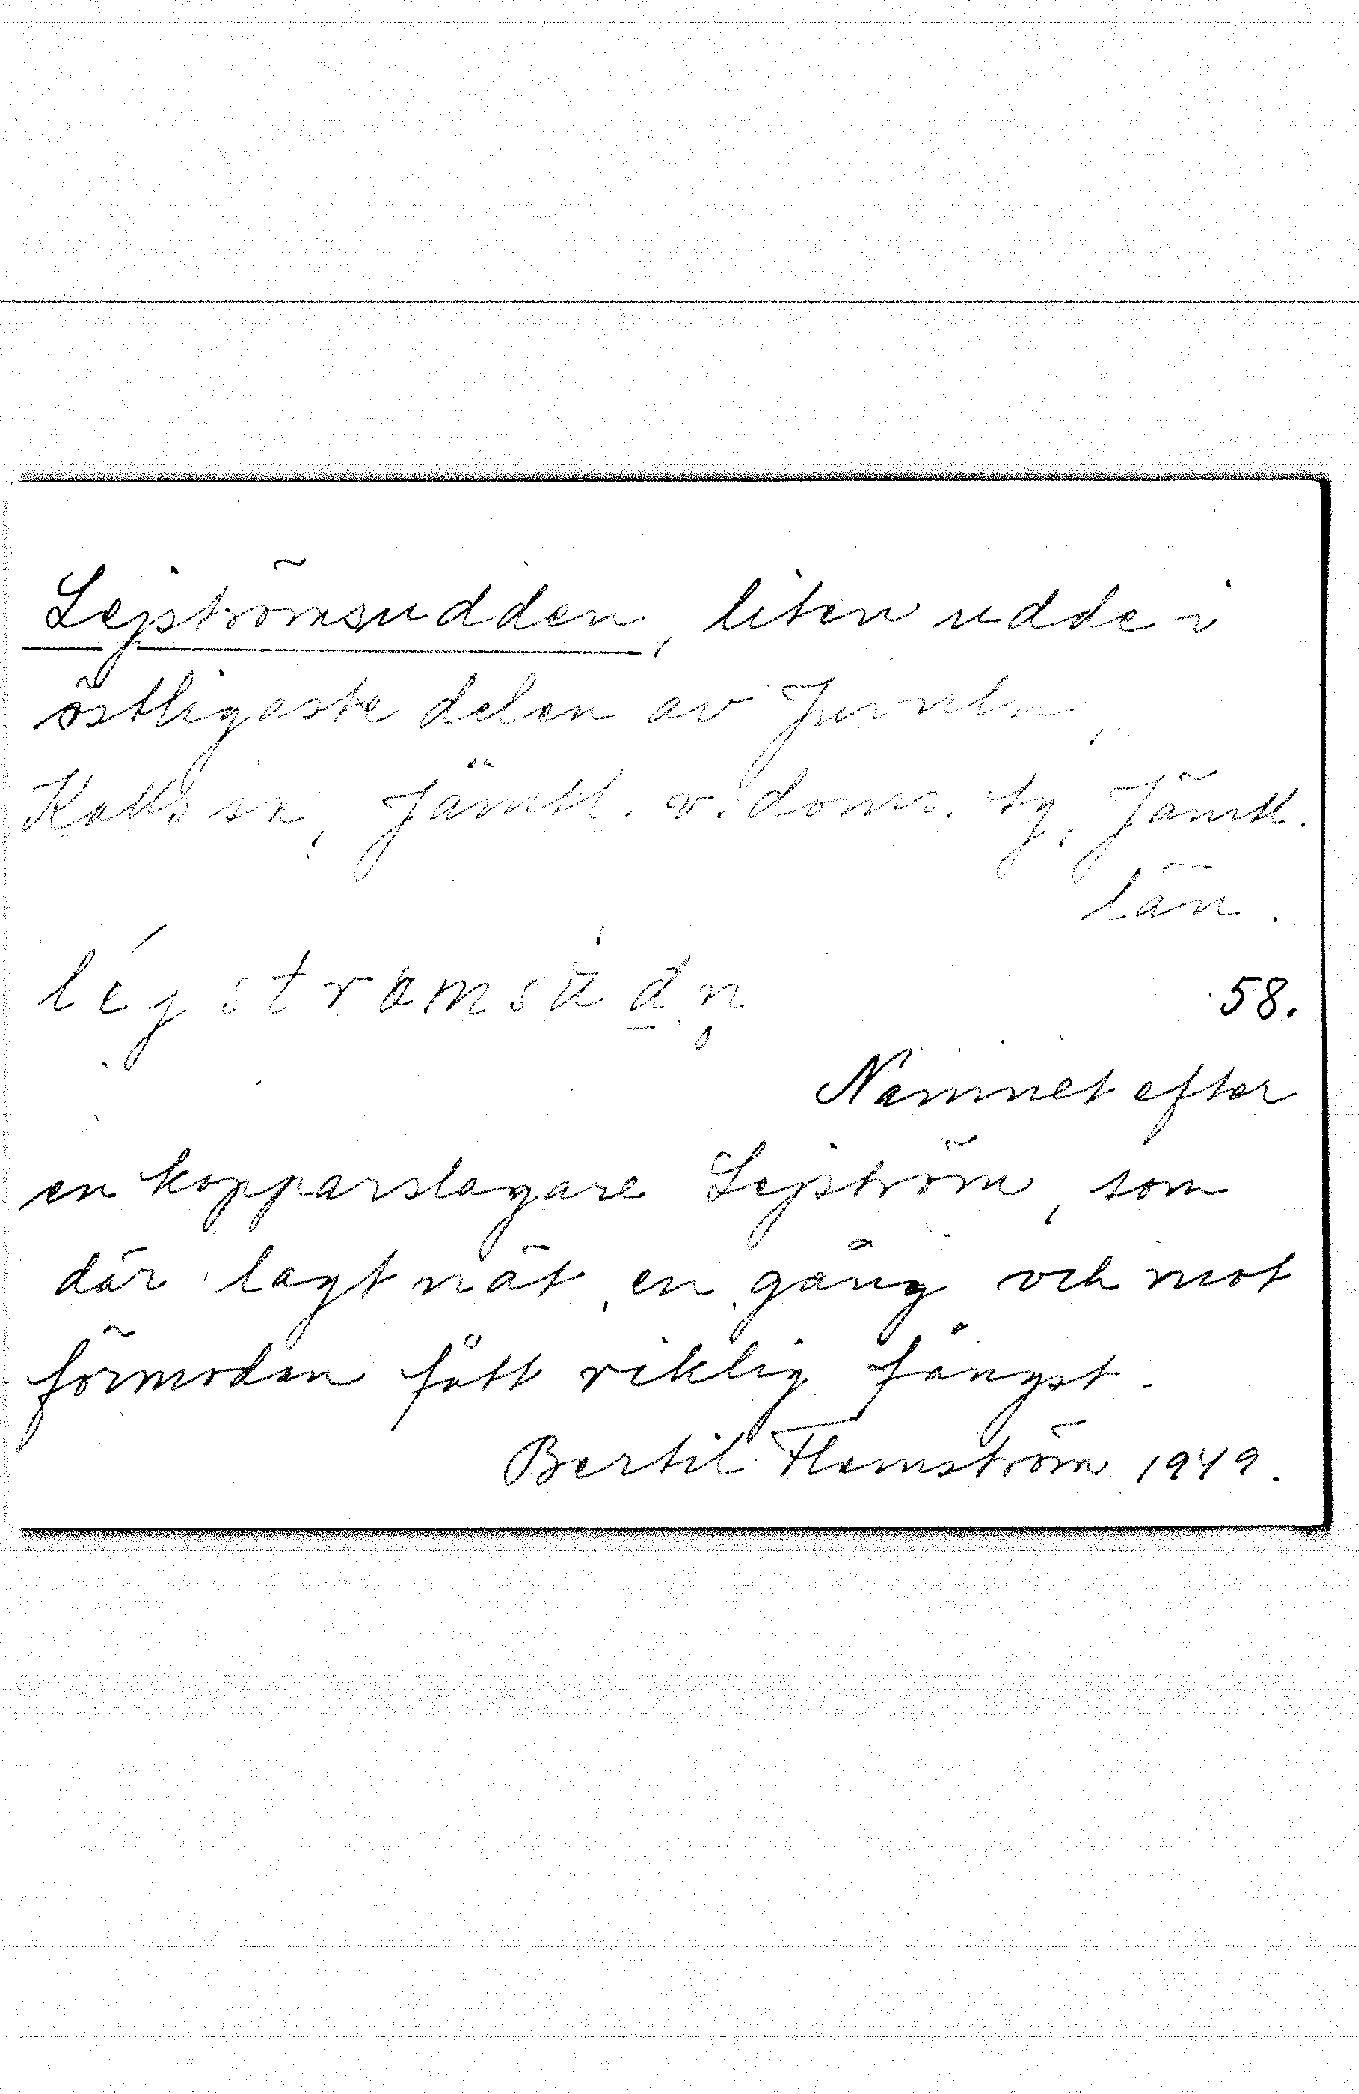 Lejströmsudden, liten udde i
östligaste delen av Juveln,
Kalls sn, Jämtl. v. doms. tg, Jämtl.
län.
léjstramsùdn̥
58.
Namnet efter
en kopparslagare Lejström, som
där lagt nät en gång och mot
förmodan fått riklig fångst.
Bertil Flemström 1949.